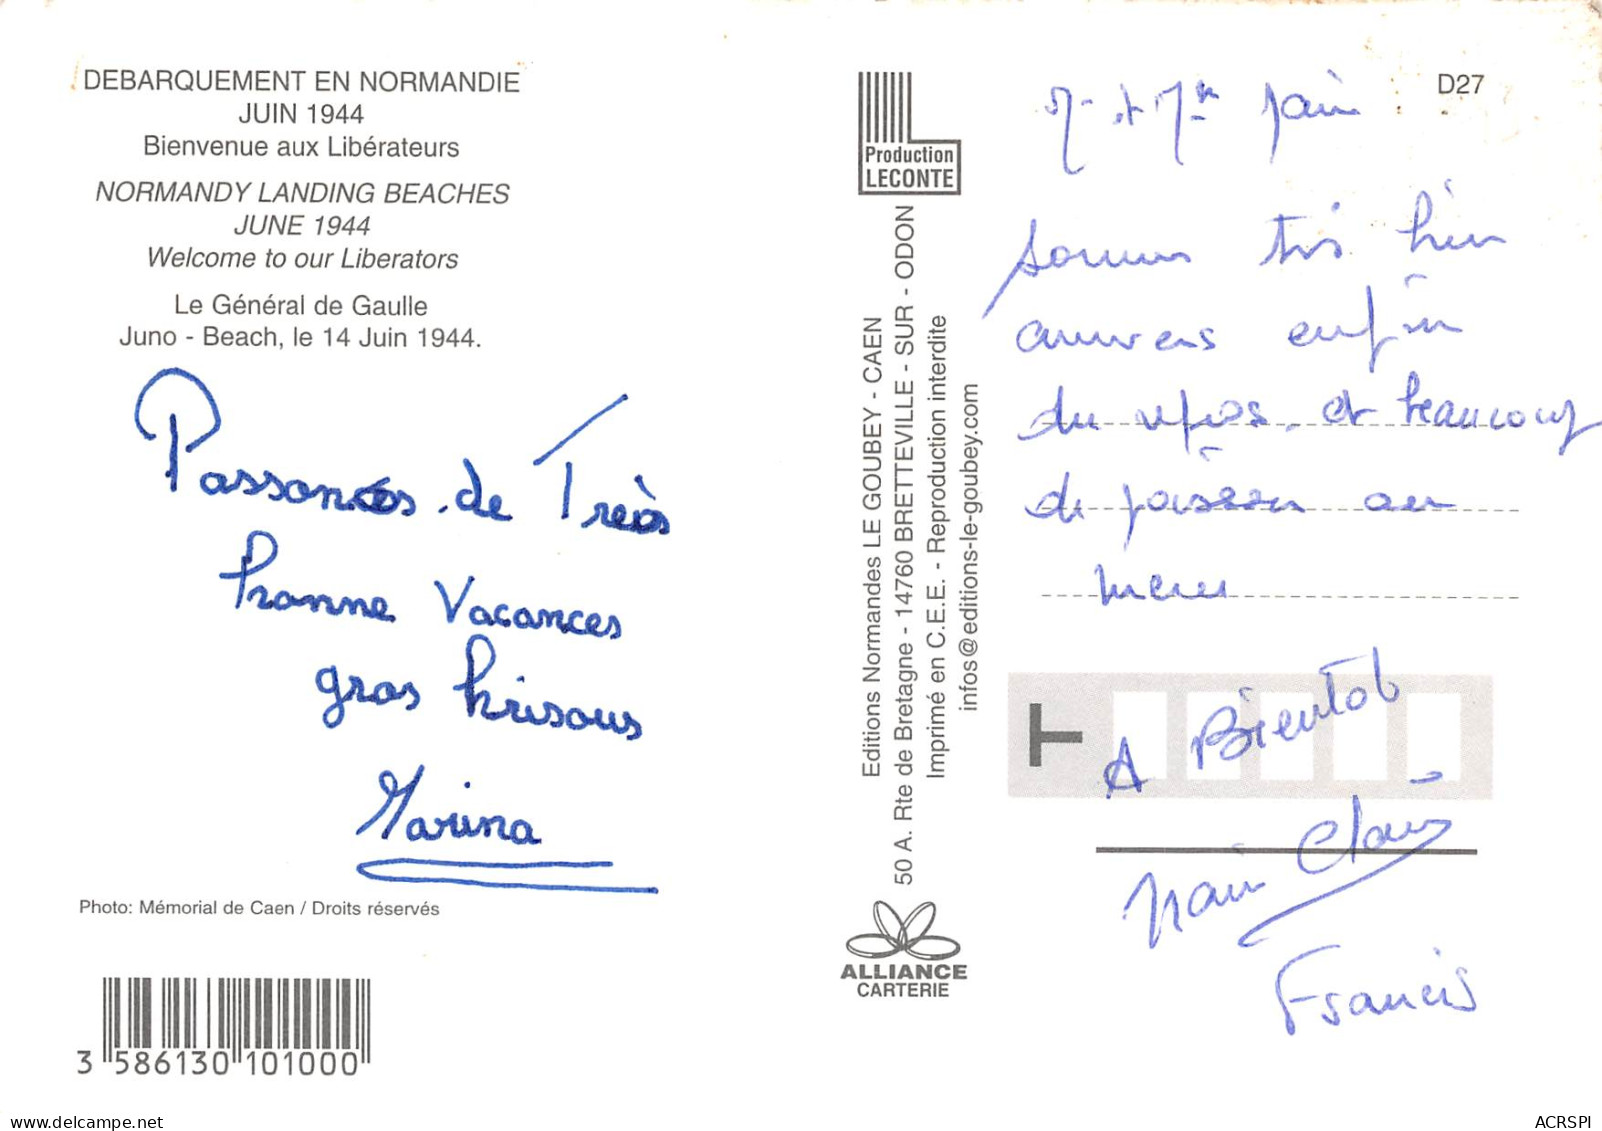 DEBARQUEMENT EN NORMANDIE
JUIN 1944
Bienvenue aux Libérateurs
NORMANDY LANDING BEACHES
JUNE 1944
Welcome to our Liberators
Le Général de Gaulle
Juno - Beach, le 14 Juin 1944.
Passons de Très
bonne Vacances
gros bisous
Marina
Photo: Mémorial de Caen / Droits réservés
3 586130 101000
Production
LECONTE
Editions Normandes LE GOUBEY - CAEN
50 A. Rte de Bretagne - 14760 BRETTEVILLE - SUR - ODON
Imprimé en C.E.E. - Reproduction interdite
infos@editions-le-goubey.com
ALLIANCE
CARTERIE
D27
M et Mme
sommes très bien
enfin
du repos, et beaucoup
de poisson au
menu
A Bientot
Claus
Francis
delcampe.net
ACRSPI